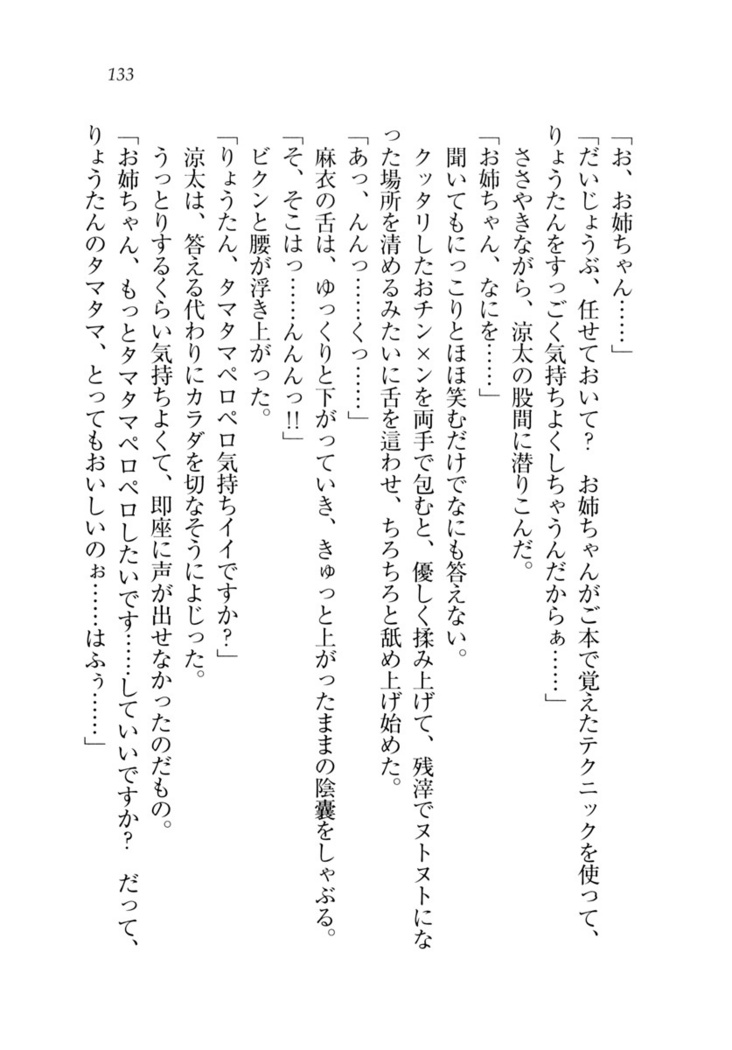 133
「お、お姉ちゃん……」
「だいじょうぶ、任せておいて？　お姉ちゃんがご本で覚えたテクニックを使って、
りょうたんをすっごく気持ちよくしちゃうんだからぁ……」
ささやきながら、涼太の股間に潜りこんだ。
「お姉ちゃん、なにを……」
聞いてもにっこりとほほ笑むだけでなにも答えない。
クッタリしたおチン×ンを両手で包むと、優しく揉み上げて、残滓でヌトヌトにな
った場所を清めるみたいに舌を這わせ、ちろちろと舐め上げ始めた。
「あっ、んんっ……くっ……」
麻衣の舌は、ゆっくりと下がっていき、きゅっと上がったままの陰嚢をしゃぶる。
「そ、そこはっ……んんんっ!!」
ビクンと腰が浮き上がった。
「りょうたん、タマタマペロペロ気持ちイイですか？」
涼太は、答える代わりにカラダを切なそうによじった。
うっとりするくらい気持ちよくて、即座に声が出せなかったのだもの。
「お姉ちゃん、もっとタマタマペロペロしたいです……していいですか？　だって、
りょうたんのタマタマ、とってもおいしいのぉ……はふぅ……」